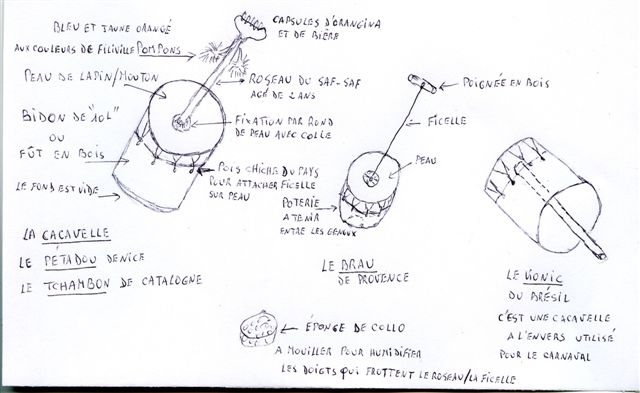 BLEU ET JAUNE ORANGÉ
AUX COULEURS DE FILIVILLE POMPONS
CAPSULES D'ORANGINA
ET DE BIÈRE
PEAU DE LAPIN/MOUTON
ROSEAU DU SAF-SAF
AGÉ DE 2 ANS
BIDON DE "10L"
OU
FÛT EN BOIS
FIXATION PAR ROND
DE PEAU AVEC COLLE
POIS CHICHE DU PAYS
POUR ATTACHER FICELLE
SUR PEAU
LE FOND EST VIDE
LA CACAVELLE
LE PÉTADOU DE NICE
LE TCHAMBON DE CATALOGNE
POIGNÉE EN BOIS
FICELLE
PEAU
POTERIE
A TENIR
ENTRE LES GENOUX
LE BRAU
DE PROVENCE
LE
DU BRÉSIL
C'EST UNE CACAVELLE
A L'ENVERS UTILISÉ
POUR LE CARNAVAL
ÉPONGE DE COLLO
A MOUILLER POUR HUMIDIFIER
LES DOIGTS QUI FROTTENT LE ROSEAU/LA FICELLE